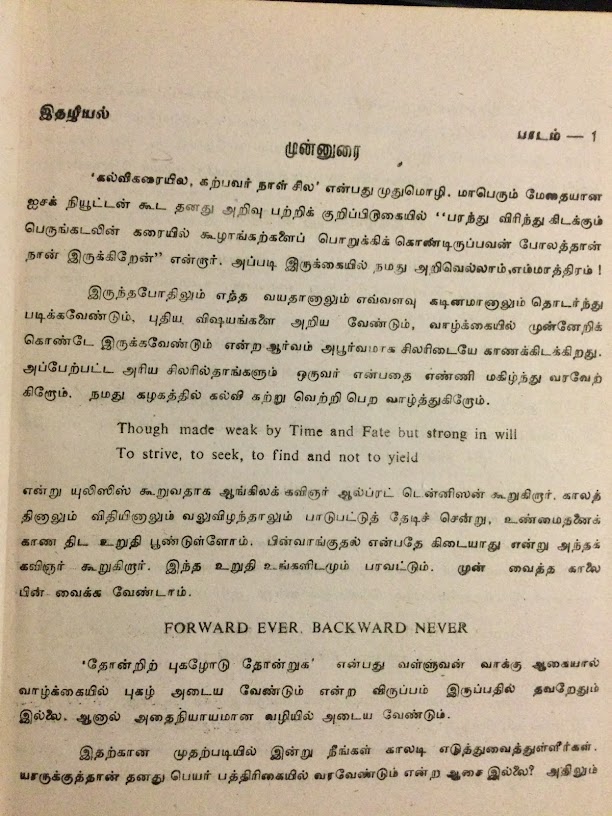 இதழியல்
பாடம் — 1
முன்னுரை
'கல்விகரையில, கற்பவர் நாள் சில' என்பது முதுமொழி. மாபெரும் மேதையான
ஐசக் நியூட்டன் கூட தனது அறிவு பற்றிக் குறிப்பிடுகையில் "பரந்து விரிந்து கிடக்கும்
பெருங்கடலின் கரையில் கூழாங்கற்களைப் பொறுக்கிக் கொண்டிருப்பவன் போலத்தான்
நான் இருக்கிறேன்" என்றார். அப்படி இருக்கையில் நமது அறிவெல்லாம்,எம்மாத்திரம் !
இருந்தபோதிலும் எந்த வயதானாலும் எவ்வளவு கடினமானாலும் தொடர்ந்து
படிக்கவேண்டும், புதிய விஷயங்களை அறிய வேண்டும், வாழ்க்கையில் முன்னேறிக்
கொண்டே இருக்கவேண்டும் என்ற ஆர்வம் அபூர்வமாக சிலரிடையே காணக்கிடக்கிறது.
அப்பேற்பட்ட அரிய சிலரில்தாங்களும் ஒருவர் என்பதை எண்ணி மகிழ்ந்து வரவேற்
கிறோம். நமது கழகத்தில் கல்வி கற்று வெற்றி பெற வாழ்த்துகிறோம்.
Though made weak by Time and Fate but strong in will
To strive, to seek, to find and not to yield
என்று யுலிஸிஸ் கூறுவதாக ஆங்கிலக் கவிஞர் ஆல்ப்ரட் டென்னிஸன் கூறுகிறார். காலத்
தினாலும் விதியினாலும் வலுவிழந்தாலும் பாடுபட்டுத் தேடிச் சென்று, உண்மைதனைக்
காண திட உறுதி பூண்டுள்ளோம். பின்வாங்குதல் என்பதே கிடையாது என்று அந்தக்
கவிஞர் கூறுகிறார். இந்த உறுதி உங்களிடமும் பரவட்டும். முன் வைத்த காலை
பின் வைக்க வேண்டாம்.
FORWARD EVER, BACKWARD NEVER
'தோன்றிற் புகழோடு தோன்றுக' என்பது வள்ளுவன் வாக்கு ஆகையால்
வாழ்க்கையில் புகழ் அடைய வேண்டும் என்ற விருப்பம் இருப்பதில் தவறேதும்
இல்லை. ஆனால் அதைநியாயமான வழியில் அடைய வேண்டும்.
இதற்கான முதற்படியில் இன்று நீங்கள் காலடி எடுத்துவைத்துள்ளீர்கள்.
யாருக்குத்தான் தனது பெயர் பத்திரிகையில் வரவேண்டும் என்ற ஆசை இல்லை? அதிலும்